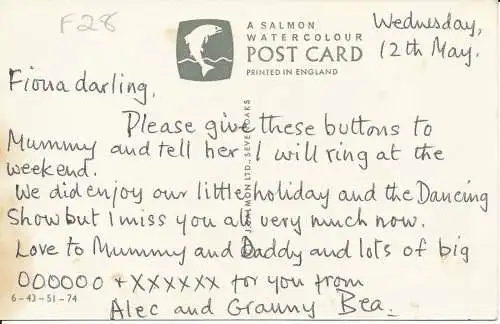 F28
A SALMON
WATERCOLOUR
POST CARD
PRINTED IN ENGLAND
Wednesday,
12th May.
Fiona darling,
Please give these buttons to
Mummy and tell her I will ring at the
weekend.
We did enjoy our little holiday and the Dancing
Show but I miss you all very much now.
Love to Mummy and Daddy and lots of big
OOOOOO + XXXXXX for you from
Alec and Granny Bea.
6-43-51-74
J. SALMON LTD., SEVENOAKS